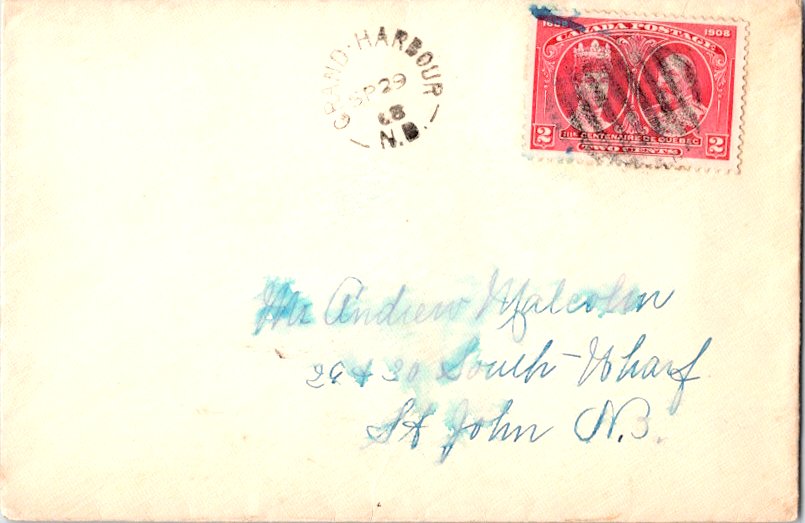 GRAND-HARBOUR
SP 29
08
N.B.
1608 1908
CANADA POSTAGE
2 IIIE CENTENAIRE DE QUÉBEC 2
TWO CENTS
Mr Andrew Malcolm
29 & 30 South-Wharf
St John N.B.